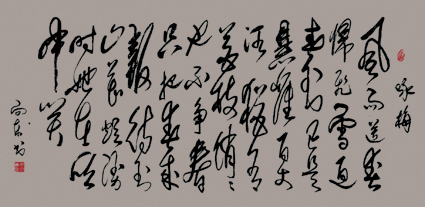 咏梅
风雨送春
归飞雪迎
春到已是
悬崖百丈
冰犹有
花枝俏〻
也不争春
只把春来
报待到
山花烂漫
时她在丛
中笑